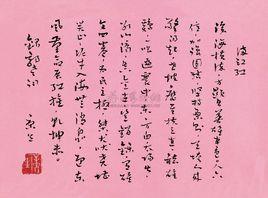 满江红
沧海横流方显出英雄本色人六
亿加强团结坚持原则天垮下来
擎得起世披靡矣扶之直听雄
鸡一唱遍寰中东方白太阳出
冰山滴真金在岂销铄有雄文
四卷为民立极桀犬吠尧堪
笑止泥牛入海无消息迎东
风革命展红旗乾坤赤
录郭老词